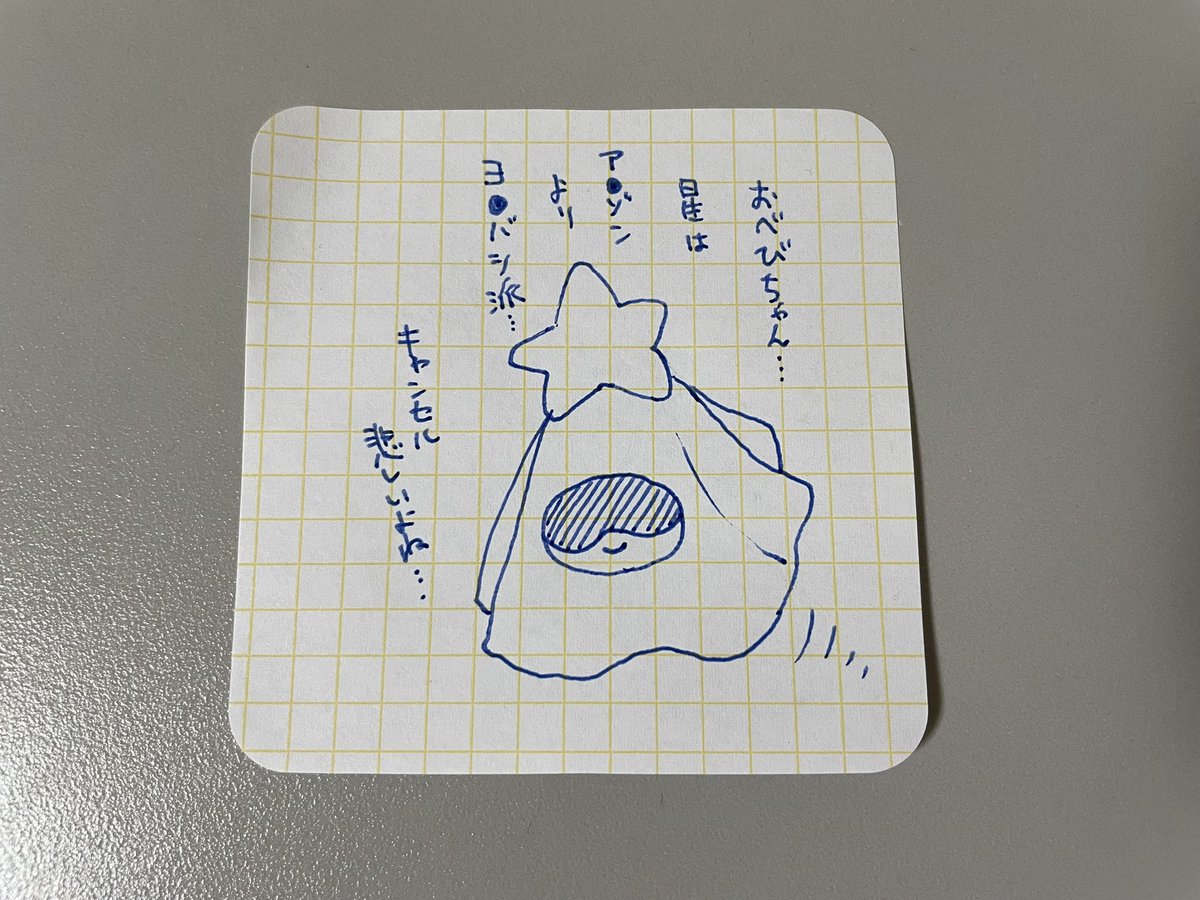 おべびちゃん…
星は
ア●ゾン
より
ヨ●バシ派…
キャンセル
悲しいよね…